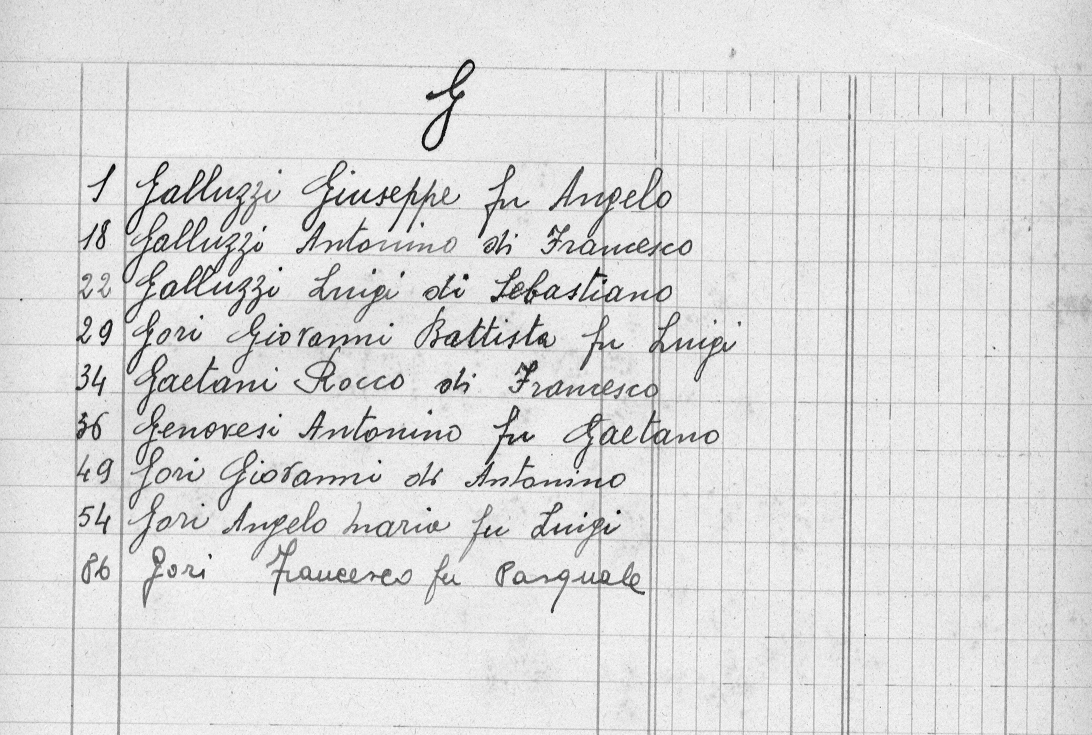 G
1 Galluzzi Giuseppe fu Angelo
18 Galluzzi Antonino di Francesco
22 Galluzzi Luigi di Sebastiano
29 Gori Giovanni Battista fu Luigi
34 Gaetani Rocco di Francesco
36 Genovesi Antonino fu Gaetano
49 Gori Giovanni di Antonino
54 Gori Angelo Maria fu Luigi
86 Gori Francesco fu Pasquale